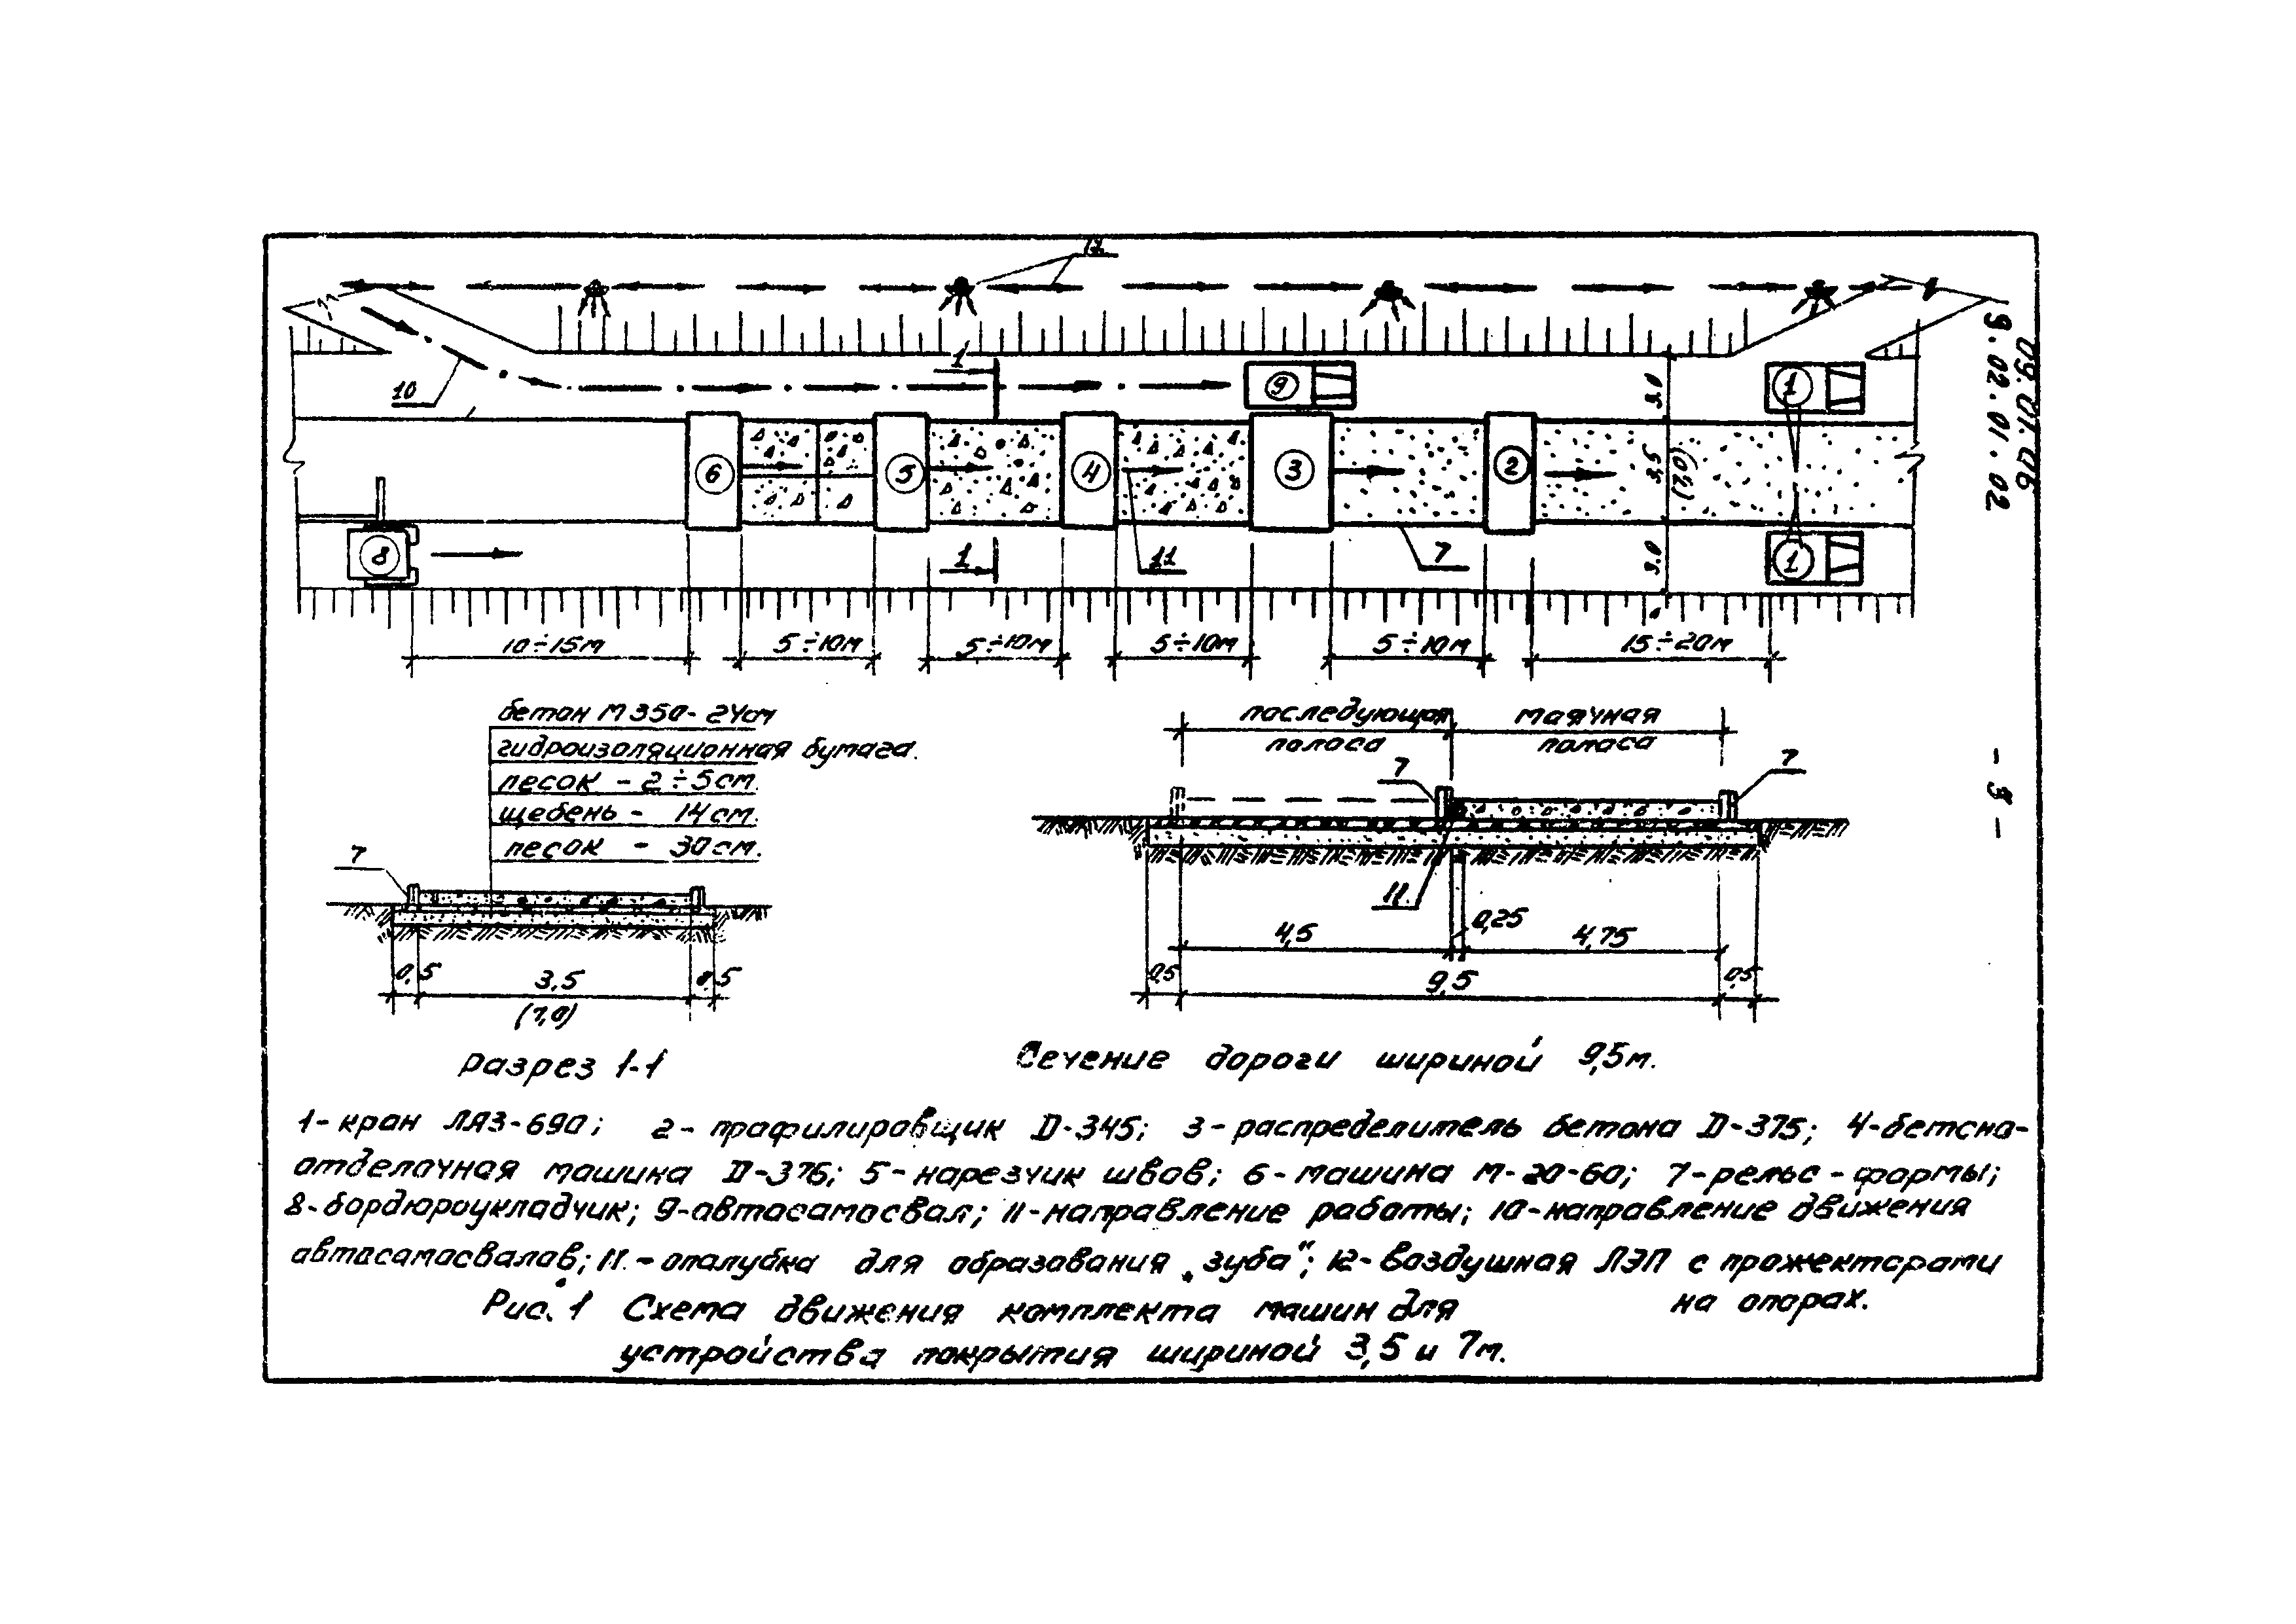 12
10
1
9
1
6
5
4
3
2
8
1
11
7
1
3.0
3,5
(7,0)
3.0
10÷15м
5÷10м
5÷10м
5÷10м
5÷10м
15÷20м
09.01.06
9.02.01.02
- 3 -
бетон М350- 24см
гидроизоляционная бумага.
песок - 2÷5см.
щебень - 14см.
песок - 30см.
7
0,5
3,5
0,5
(7,0)
Разрез 1-1
последующая
полоса
маячная
полоса
7
7
11.
4,5
0,25
4,75
0,5
9,5
0,5
Сечение дороги шириной 9,5м.
1- кран ЛАЗ-690; 2- профилировщик Д-345; 3- распределитель бетона Д-375; 4-бетоно-
отделочная машина Д-376; 5-нарезчик швов; 6-машина М-20-60; 7-рельс-формы;
8-бордюроукладчик; 9-автосамосвал; 11-направление работы; 10-направление движения
автосамосвалов; 11.-опалубка для образования „зуба"; 12-воздушная ЛЭП с прожекторами
на опорах.
Рис. 1 Схема движения комплекта машин для
устройства покрытия шириной 3,5 и 7м.